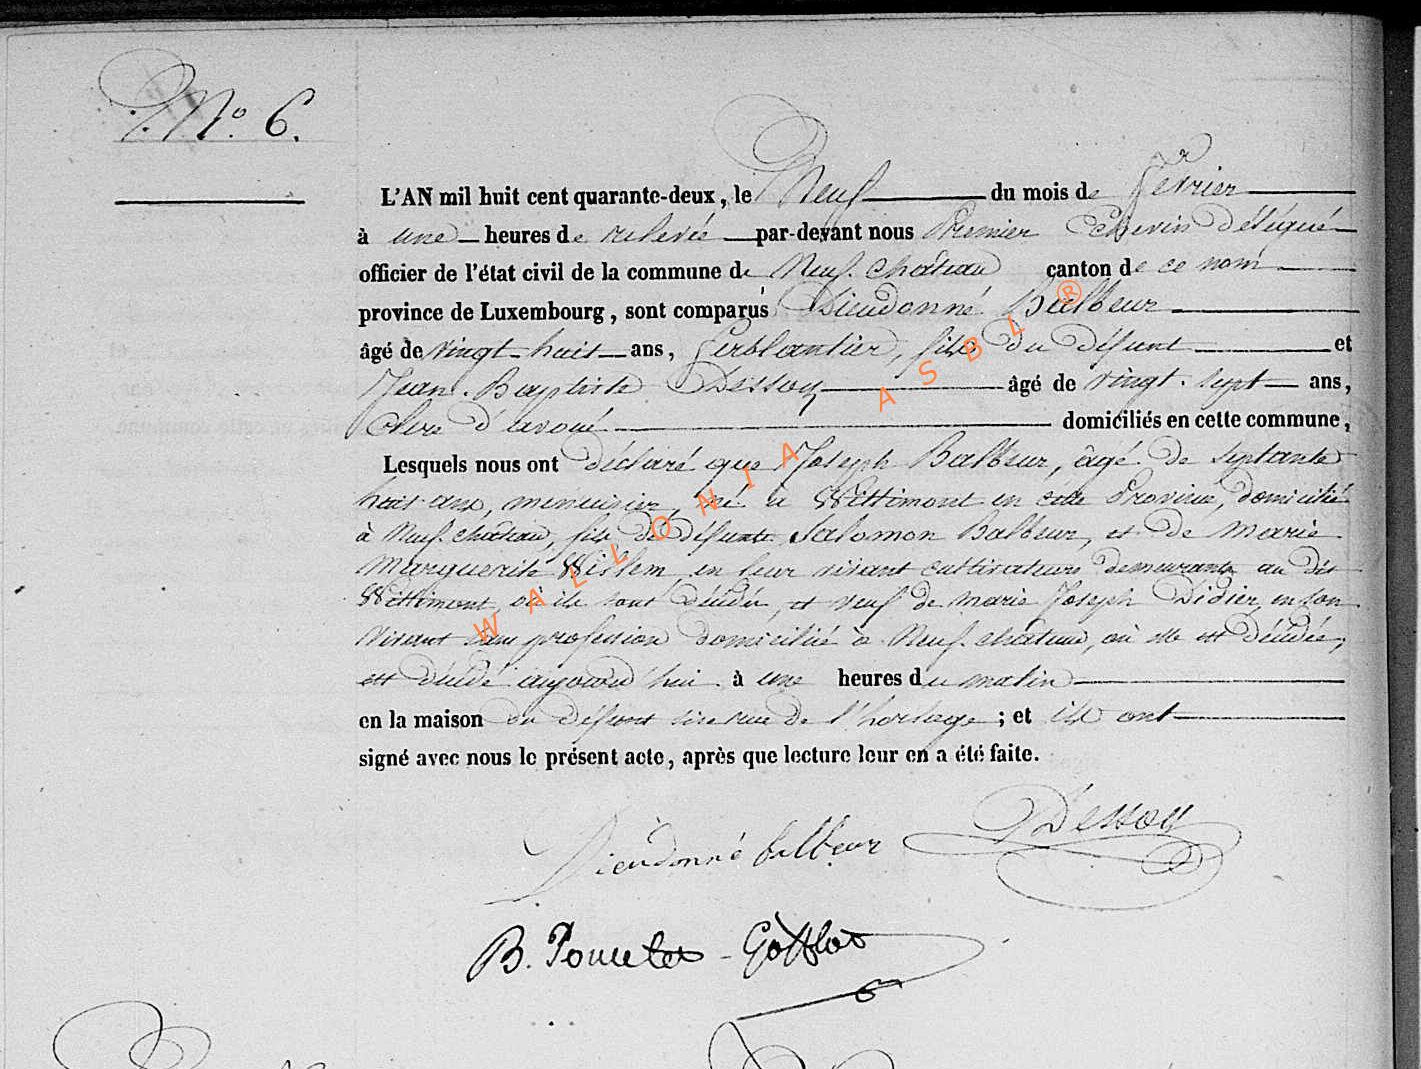 N.° 6.
L'AN mil huit cent quarante-deux, le Neuf du mois de février
à une heures de relevée par-devant nous Premier Echevin Délégué
officier de l'état civil de la commune de Neufchateau canton de ce nom
province de Luxembourg, sont comparus Dieudonné Balbeur
âgé de vingt-huit ans, ferblantier, fils du défunt et
Jean-Baptiste Dessoy âgé de vingt-sept ans,
Clerc d'avoué domiciliés en cette commune,
Lesquels nous ont déclaré que Joseph Balbeur, âgé de septante
huit ans, menuisier, né à Wittimont en cette Province, domicilié
à Neufchateau, fils de défunts Salomon Balbeur, et de Marie
Marguerite en leur vivant cultivateurs demeurants au dit
Wittimont, où ils sont décédés, et veuf de Marie Joseph Didier, en son
vivant sans profession domiciliée à Neufchateau, où elle est décédée,
est décédé aujourd'hui à une heures du matin
en la maison du défunt sise rue de l'horloge ; et ils ont
signé avec nous le présent acte, après que lecture leur en a été faite.
Dieudonné balbeur Dessoy
B. Poncelet -
WALLONIA ASBL ®